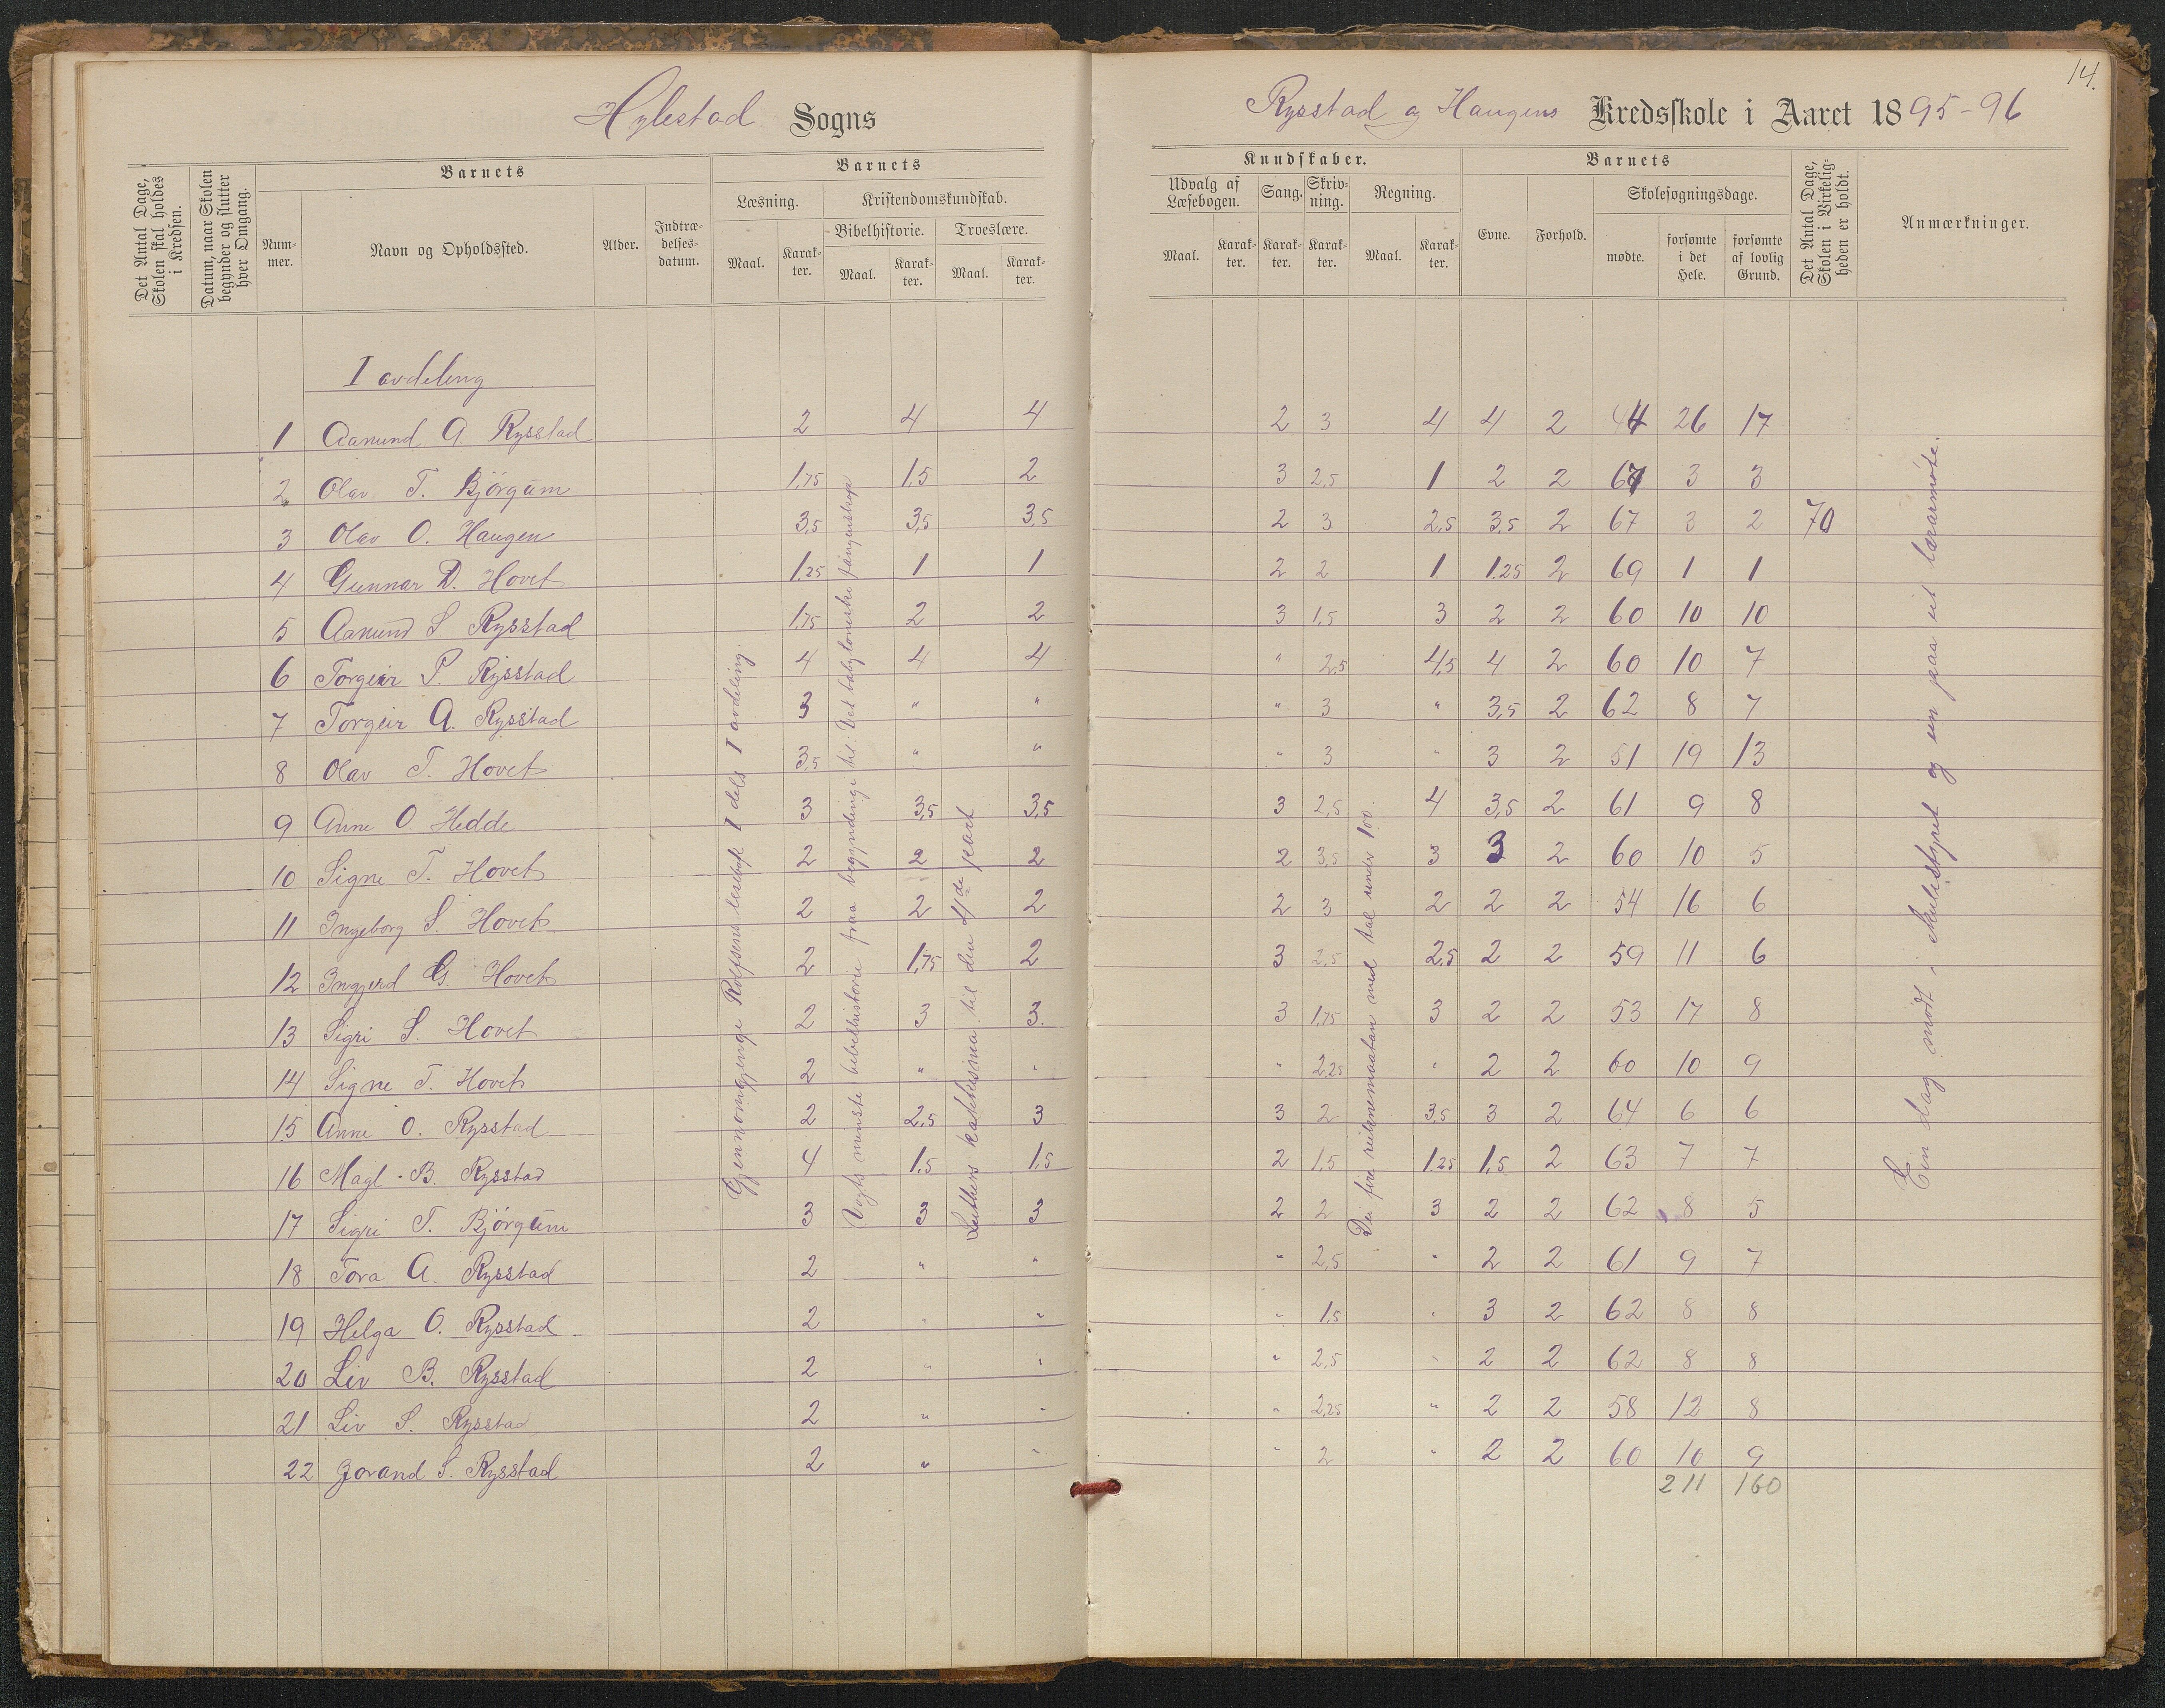 14.
Hylestad Sogns
Rysstad og Haugens Kredsskole i Aaret 1895-96
Det Antal Dage, Skolen skal holdes i Kredsen.
Datum, naar Skolen begynder og slutter hver Omgang.
Barnets
Num-mer.
Navn og Opholdssted.
Alder.
Indtræ-delses-datum.
Barnets
Læsning.
Maal.
Karak-ter.
Kristendomskundskab.
Bibelhistorie.
Maal.
Karak-ter.
Troeslære.
Maal.
Karak-ter.
Kundskaber.
Udvalg af Læsebogen.
Maal.
Karak-ter.
Sang.
Karak-ter.
Skriv-ning.
Karak-ter.
Regning.
Maal.
Karak-ter.
Barnets
Evne.
Forhold.
Skolesøgningsdage.
mødte.
forsømte i det Hele.
forsømte af lovlig Grund.
Det Antal Dage, Skolen i Virkelig-heden er holdt.
Anmærkninger.
I avdeling
1 Aanund A Rysstad 2 4 4 2 3 4 4 2 44 26 17
2 Olav T. Bjørgum 1,75 1,5 2 3 2,5 1 2 2 67 3 3
3 Olav O. Haugen 3,5 3,5 3,5 2 3 2,5 3,5 2 67 3 2 70
4 Gunnar D. Hovet 1.25 1 1 2 2 1 1.25 2 69 1 1
5 Aanund S Rysstad 1,75 2 2 3 1,5 3 2 2 60 10 10
6 Torgeir P. Rysstad 4 4 4 " 2.5 4,5 4 2 60 10 7
7 Torgeir A. Rysstad 3 " " " 3 " 3,5 2 62 8 7
8 Olav T. Hovet 3,5 " " " 3 " 3 2 51 19 13
9 Anne O. Hedde 3 3,5 3,5 3 2,5 4 3,5 2 61 9 8
10 Signe T. Hovet 2 2 2 2 3,5 3 3 2 60 10 5
11 Ingeborg S. Hovet 2 2 2 2 3 2 2 2 54 16 6
12 Ingjerd G. Hovet 2 1,75 2 3 2,5 2,5 2 2 59 11 6
13 Sigri S. Hovet 2 3 3. 3 1,75 3 2 2 53 17 8
14 Signe T. Hovet 2 " " " 2.25 " 2 2 60 10 9
15 Anne O. Rysstad 2 2,5 3 3 2 3,5 3 2 64 6 6
16 Magl. B. Rysstad 4 1,5 1,5 2 1,5 1,25 1,5 2 63 7 7
17 Sigri T. Bjørgum 3 3 3 2 2 3 2 2 62 8 5
18 Tora A. Rysstad 2 " " " 2,5 " 2 2 61 9 7
19 Helga O. Rysstad 2 " " " 1,5 " 3 2 62 8 8
20 Liv B. Rysstad 2 " " " 2,5 " 2 2 62 8 8
21 Liv S. Rysstad 2 " " " 2,25 " 2 2 58 12 8
22 Jorand S. Rysstad 2 " " " 2 " 2 2 60 10 9
211 160
Gjennomgjenge Rolfsens lesebok I dels I avdeling.
Vogts minste bibelhistorie fraa begyndinge til: Det babyloneske fangenskap
Luthers katekisma til den 4de part
Dei fire reiknemaatan med tal under 100.
Ein dag møtt i skulestyret og ein paa eit lærarmøte.